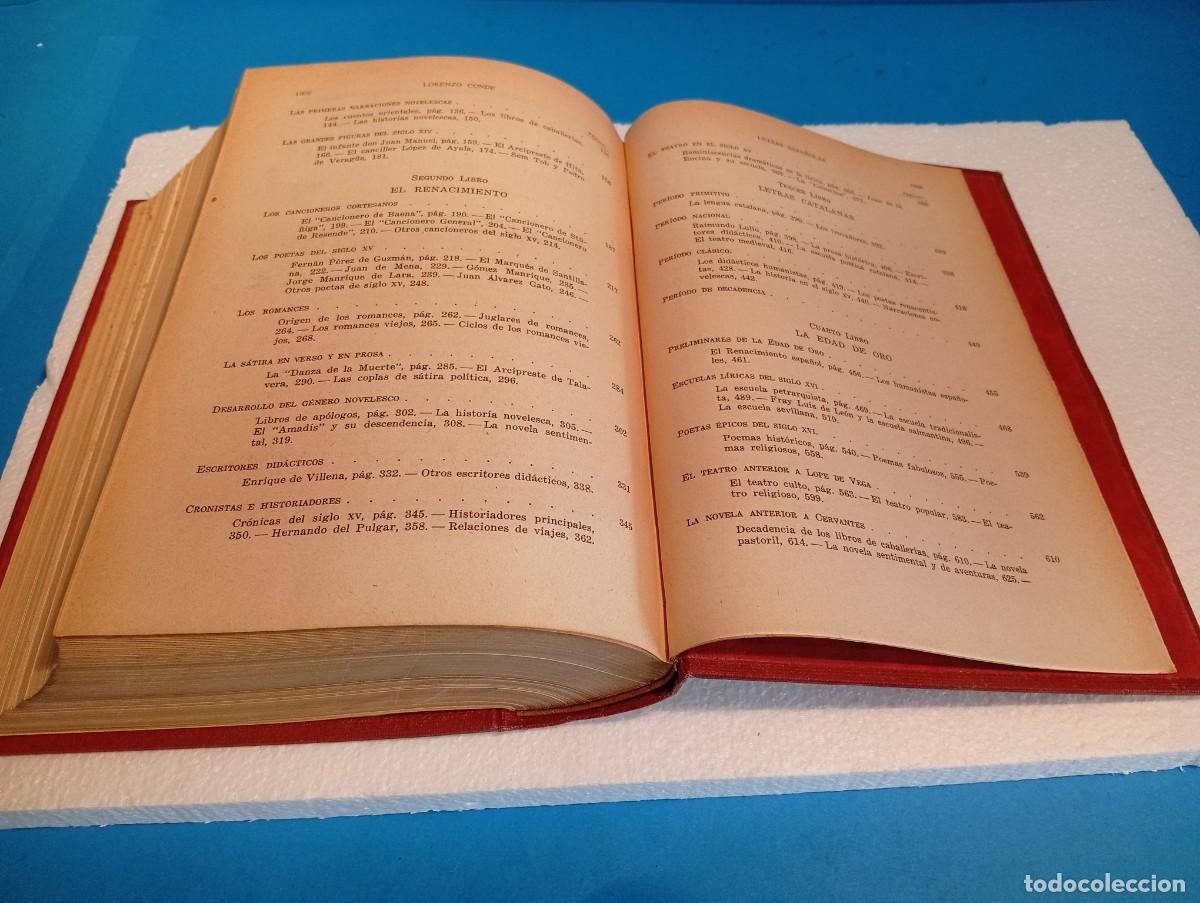 LORENZO CONDE
LAS PRIMERAS NARRACIONES NOVELESCAS
Los cuentos orientales, pág. 136. — Los libros de caballerías,
144. — Las historias novelescas, 150.
LAS GRANDES FIGURAS DEL SIGLO XIV
El infante don Juan Manuel, pág. 159. — El Arcipreste de Hita,
166. — El canciller López de Ayala, 174. — Sem Tob y Pedro
de Veragüe, 181.
SEGUNDO LIBRO
EL RENACIMIENTO
LOS CANCIONEROS CORTESANOS 187
El "Cancionero de Baena", pág. 190. — El "Cancionero de Stú-
ñiga", 199. — El "Cancionero General", 204. — El "Cancionero
de Resende", 210. — Otros cancioneros del siglo XV, 214.
LOS POETAS DEL SIGLO XV 217
Fernán Pérez de Guzmán, pág. 218. — El Marqués de Santilla-
na, 222. — Juan de Mena, 229. — Gómez Manrique, 235. —
Jorge Manrique de Lara, 239. — Juan Alvarez Gato, 246. —
Otros poetas de siglo XV, 248.
LOS ROMANCES 262
Origen de los romances, pág. 262. — Juglares de romances,
264. — Los romances viejos, 265. — Ciclos de los romances vie-
jos, 268.
LA SÁTIRA EN VERSO Y EN PROSA 284
La "Danza de la Muerte", pág. 285. — El Arcipreste de Tala-
vera, 290. — Las coplas de sátira política, 296.
DESARROLLO DEL GÉNERO NOVELESCO 302
Libros de apólogos, pág. 302. — La historia novelesca, 305. —
El "Amadís" y su descendencia, 308. — La novela sentimen-
tal, 319.
ESCRITORES DIDÁCTICOS 331
Enrique de Villena, pág. 332. — Otros escritores didácticos, 338.
CRONISTAS E HISTORIADORES 345
Crónicas del siglo XV, pág. 345. — Historiadores principales,
350. — Hernando del Pulgar, 358. — Relaciones de viajes, 362.
LETRAS ESPAÑOLAS
EL TEATRO EN EL SIGLO XV
Reminiscencias dramáticas en la lírica, pág. — Juan de la
Encina y su escuela, — La "Celestina", 371.
TERCER LIBRO
LETRAS CATALANAS
PERÍODO PRIMITIVO
La lengua catalana, pág. 390. — Los trovadores, 392.
PERÍODO NACIONAL
Raimundo Lulio, pág. 398. — La prosa histórica, 406. — Escri-
tores didácticos, 410. — La escuela poética catalana, 414. —
El teatro medieval, 416.
PERÍODO CLÁSICO 418
Los didácticos humanistas, pág. 419. — Los poetas renacentis-
tas, 428. — La historia en el siglo XV, 440. — Narraciones no-
velescas, 442.
PERÍODO DE DECADENCIA 449
CUARTO LIBRO
LA EDAD DE ORO
PRELIMINARES DE LA EDAD DE ORO 455
El Renacimiento español, pág. 456. — Los humanistas españo-
les, 461.
ESCUELAS LÍRICAS DEL SIGLO XVI 468
La escuela petrarquista, pág. 469. — La escuela tradicionalis-
ta, 489. — Fray Luis de León y la escuela salmantina, 496. —
La escuela sevillana, 519.
POETAS ÉPICOS DEL SIGLO XVI 539
Poemas históricos, pág. 540. — Poemas fabulosos, 555. — Poe-
mas religiosos, 558.
EL TEATRO ANTERIOR A LOPE DE VEGA 562
El teatro culto, pág. 563. — El teatro popular, 583. — El tea-
tro religioso, 599.
LA NOVELA ANTERIOR A CERVANTES 610
Decadencia de los libros de caballerías, pág. 610. — La novela
pastoril, 614. — La novela sentimental y de aventuras, 625. —
todocoleccion